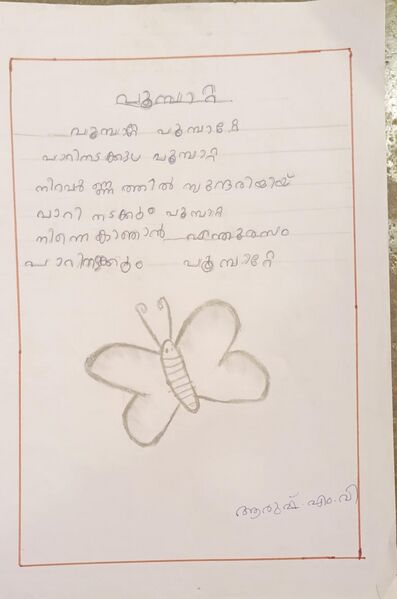 പൂമ്പാറ്റ
പൂമ്പാറ്റേ പൂമ്പാറ്റേ
പാറിനടക്കും പൂമ്പാറ്റ
നിറവർണ്ണത്തിൽ സുന്ദേരിയായ്
പാറി നടക്കും പൂമ്പാറ്റ
നിന്നെ കാഞാൻ എന്തുരസം
പാറിനടക്കും പൂമ്പാറ്റേ
ആരുഷ്. എം. വി